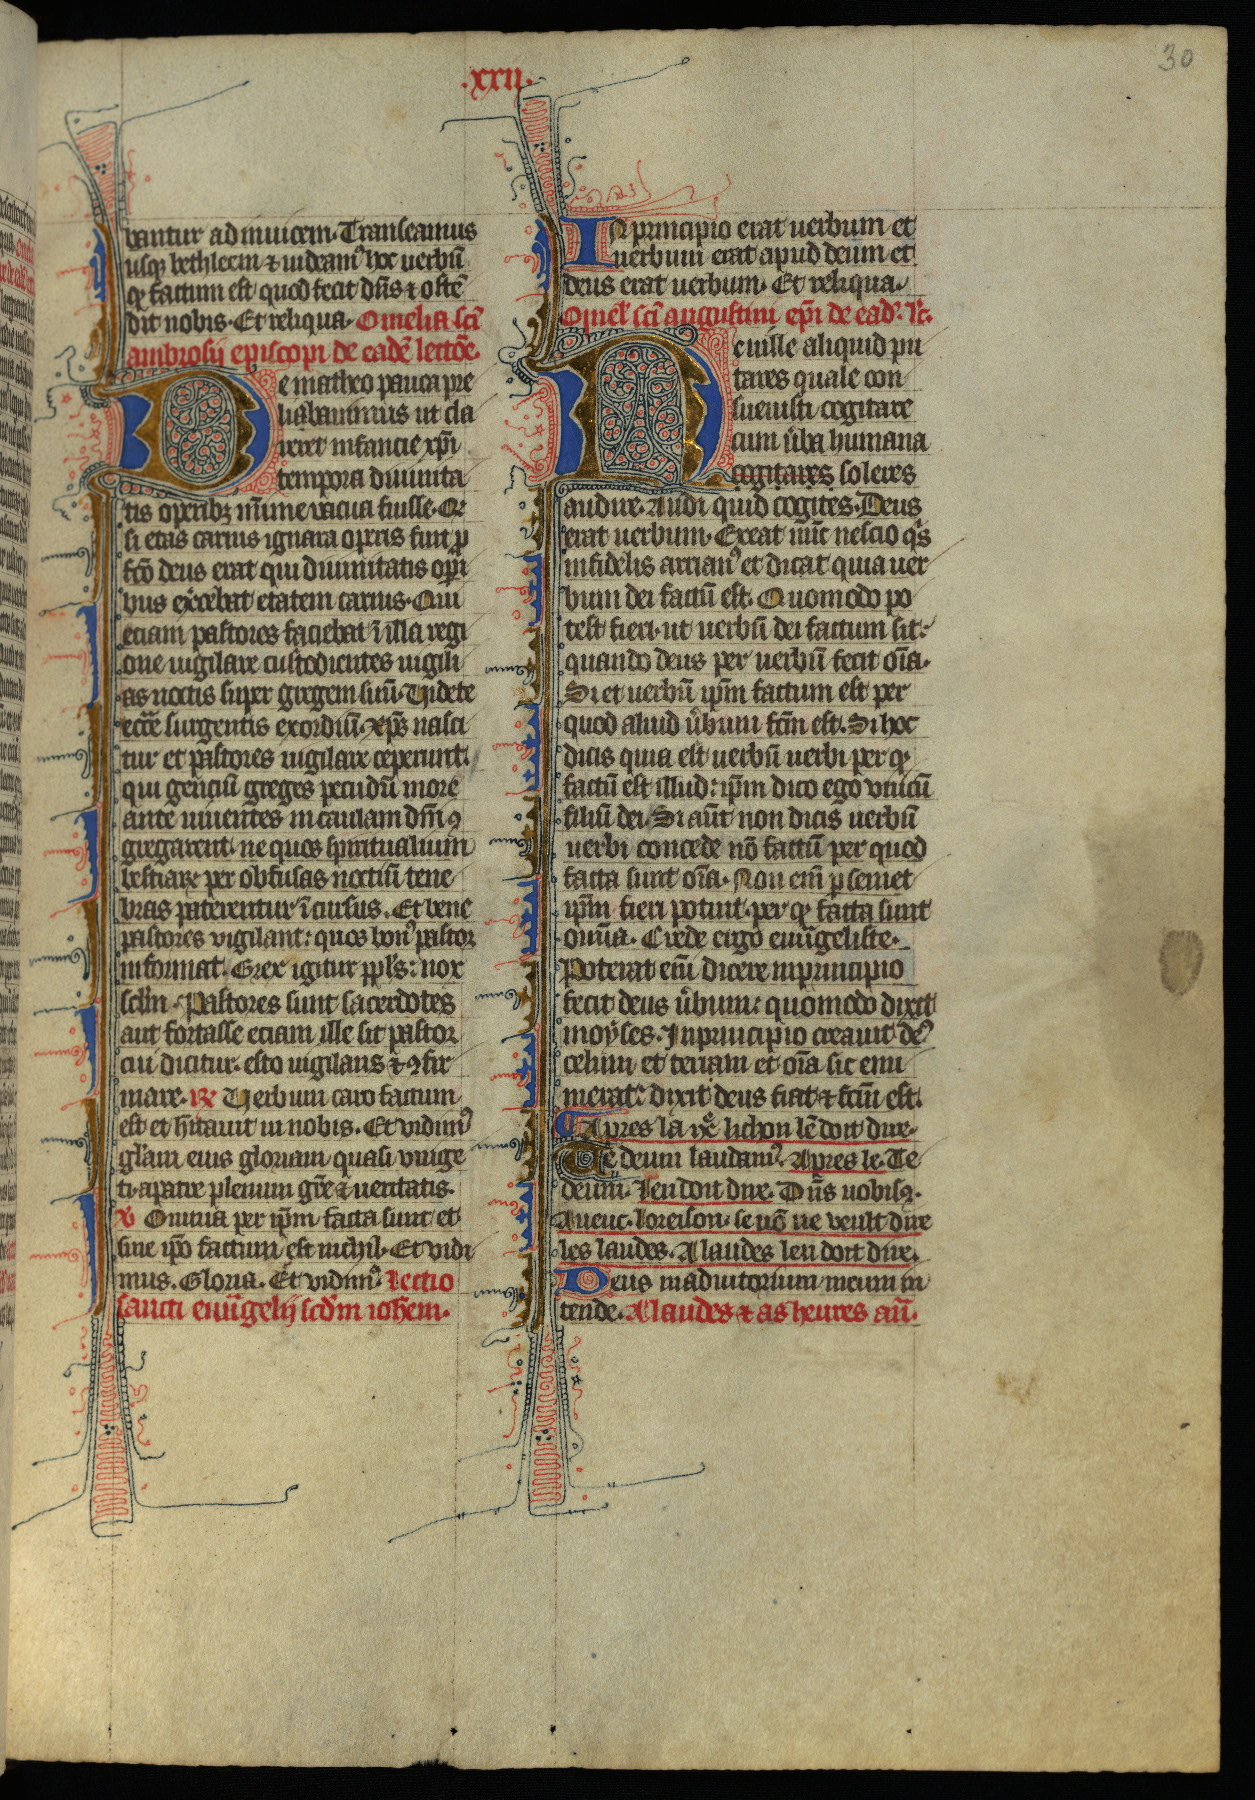 30
.xxii.
bantur ad inuicem. Transeamus
usq; bethleem ⁊ uideam9 hoc uerbū
qđ factum est quod fecit dn̄s ⁊ ostē
dit nobis. Et reliqua. Omelia sc̄i
ambrosij episcopi de eadē lectōe.
De matheo pauca pre
libauimus ut cla
reret infancie xp̄i
tempora diuinita
tis operib; mīme uacua fuisse. Et
si etas carnis ignara operis fuit ꝑ
fcō deus erat qui diuinitatis opi
bus exc̄ebat etatem carnis. Qui
eciam pastores faciebat ī illa regi
one uigilare custodientes uigili
as noctis super gregem suū. Videte
ecc̄e surgentis exordiū. xp̄s nasci
tur et pastores uigilare ceperunt.
qui genciū greges pecudū more
ante uiuentes in caulam dn̄i ꝯ
gregarent. ne quos spiritualium
bestiare per obfusas noctiū tene
bras paterentur īcursus. Et bene
pastores vigilant: quos bon9 pastor
informat. Grex igitur ppl̄s: nox
sclm̄. Pastores sunt sacerdotes
aut fortasse eciam ille sit pastor
cui dicitur. esto uigilans ⁊ ꝯfir
mare. R̸ Verbum caro factum
est et hītauit in nobis. Et vidim9
glām eius gloriam quasi vnige
ti apatre plenum grē ⁊ ueritatis.
V̸ Omnia per ip̄m facta sunt et
sine ip̄o factum est nichil. Et vidi
mus. Gloria. Et vidim9 Lectio
sancti euūgelij scd̄m ioh̄em.
In principio erat uerbum et
uerbum erat apud deum et
deus erat uerbum. Et reliqua.
Omel̄ sc̄i augustini ep̄i de ead. lc̄.
Ne uille aliquid pu
tares quale con
sueuisti cogitare
cum ūba humana
cogitares soleres
audire. Audi quid cogites. Deus
erat uerbum. Exeat nūc nescio qis
infidelis arrian9 et dicat quia uer
bum dei factū est. Quomodo po
test fieri. ut uerbū dei factum sit:
quando deus per uerbū fecit oīa.
Si et uerbū ip̄m factum est per
quod aliud ūbum fcm̄ est. Si hoc
dicis quia est uerbū uerbi per qđ
factū est illud: ip̄m dico ego vnicū
filiū dei. Si aūt non dicis uerbū
uerbi concede nō factū per quod
facta sunt oīa. Non enī ꝑ semet
ip̄m fieri potuit. per qđ facta sunt
omīa. Crede ergo euūgeliste.
Poterat enī dicere in principio
fecit deus ūbum: quomodo dixit
moyses. In principio creauit de9
celum et terram et oīa sic enu
merat: dixit deus fiat ⁊ fcm̄ est.
Apres la ixe lichon lē doit dire.
Te deum laudam9. Apres le. Te
deum. len doit dire. Dn̄s uobisꝯ.
Auenc. loreison. se nō ne veult dire
les laudes. A laudes len doit dire.
Deus in adiutorium meum in
tende. A laudes ⁊ as heures an̄.